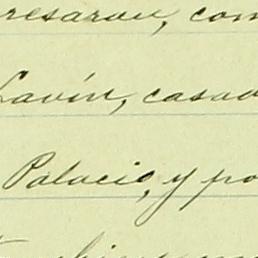 resaron, com
Lavín, casad
Palacio, y po